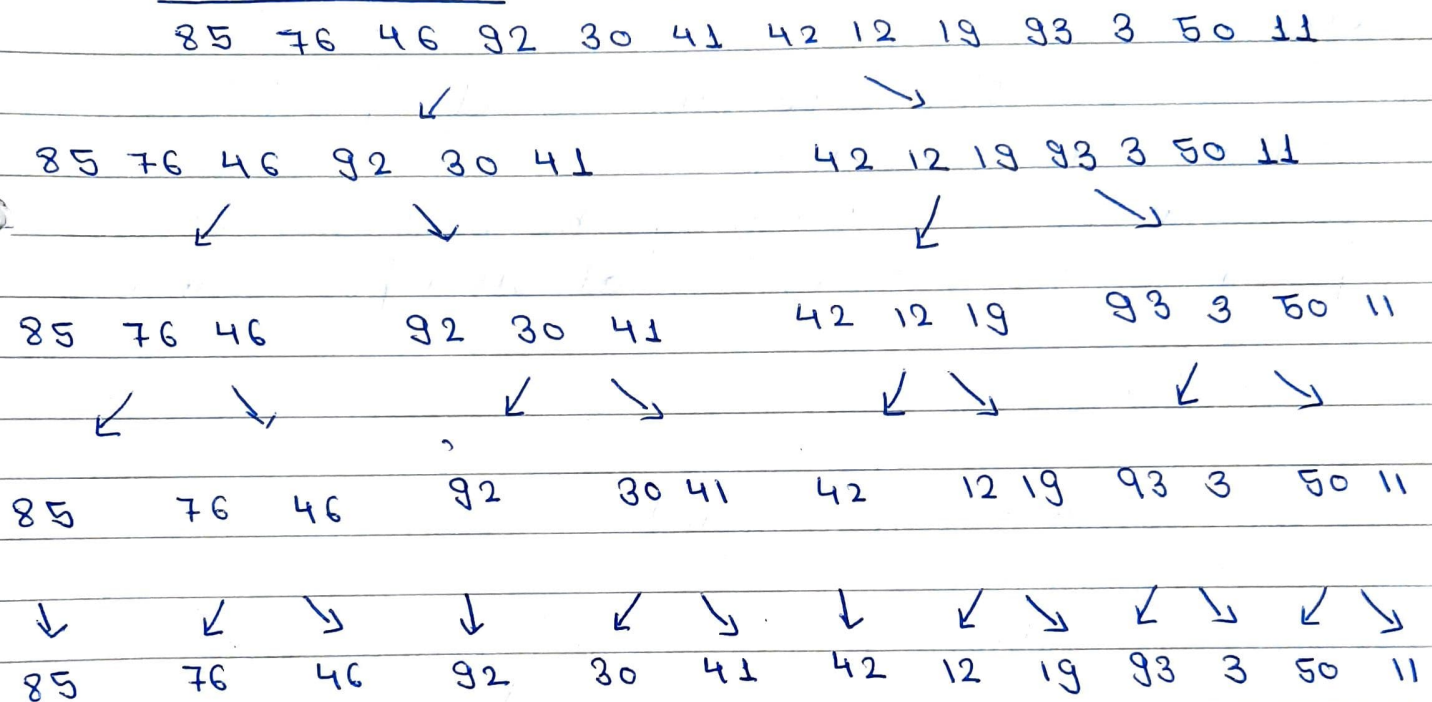 85 76 46 92 30 41 42 12 19 93 3 50 11
85 76 46 92 30 41 42 12 19 93 3 50 11
85 76 46 92 30 41 42 12 19 93 3 50 11
85 76 46 92 30 41 42 12 19 93 3 50 11
85 76 46 92 30 41 42 12 19 93 3 50 11